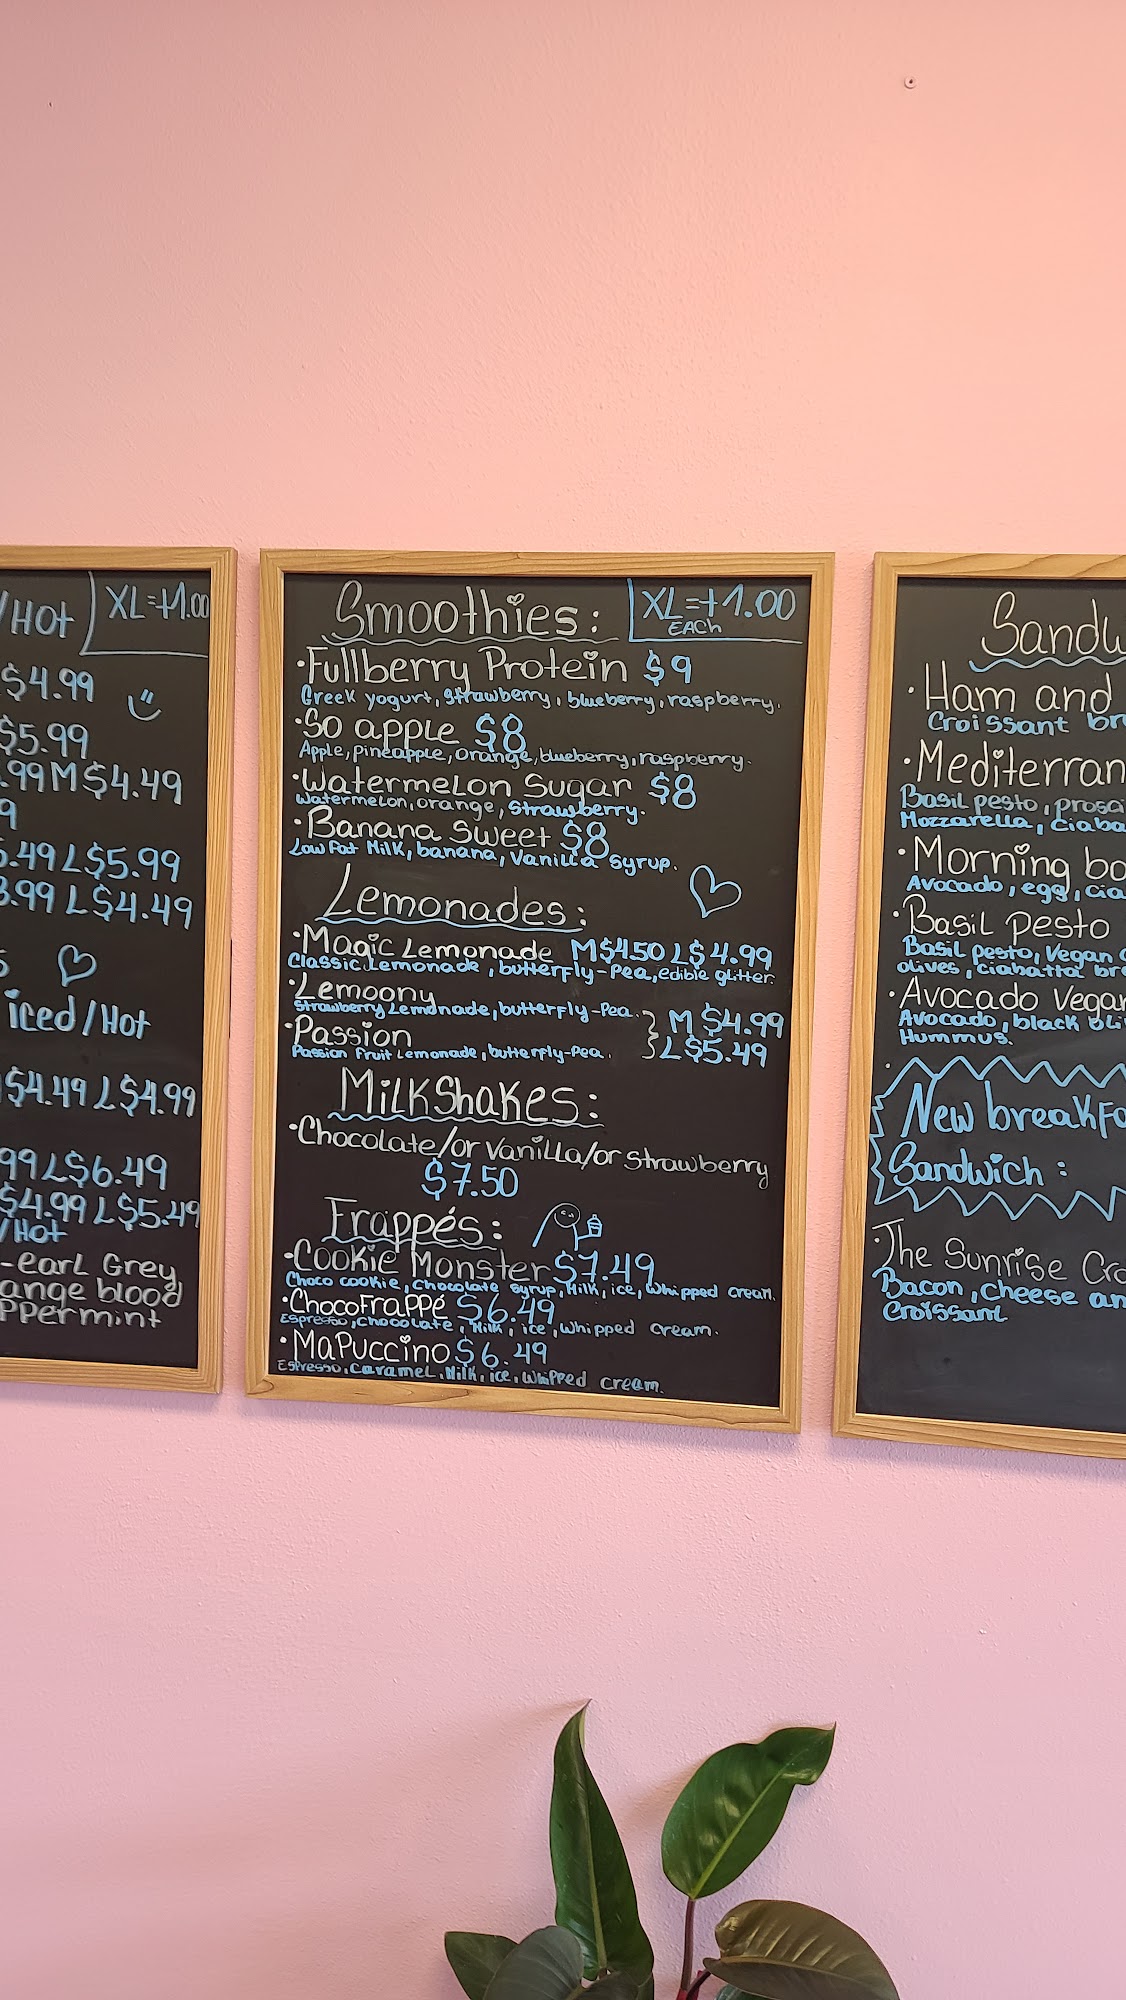 /Hot
XL=+1.00
$4.99
$5.99
.99 M $4.49
9
.49 L $5.99
3.99 L $4.49
s
iced/Hot
$4.49 L $4.99
99 L $6.49
$4.99 L $5.49
/Hot
-earl Grey
ange blood
ppermint
Smoothies:
XL=+1.00
EACh
·Fullberry Protein $9
Greek yogurt, strawberry, blueberry, raspberry.
·So apple $8
Apple, pineapple, orange, blueberry, raspberry.
·Watermelon Sugar $8
Watermelon, orange, strawberry.
·Banana Sweet $8
Low Fat Milk, banana, Vanilla syrup.
Lemonades:
·Magic Lemonade M $4.50 L $4.99
Classic Lemonade, butterfly-pea, edible glitter.
·Lemoony
Strawberry Lemonade, butterfly-Pea.
·Passion
Passion Fruit Lemonade, butterfly-Pea.
} M $4.99
L $5.49
MilkShakes:
·Chocolate/or Vanilla/or strawberry
$7.50
Frappés:
·Cookie Monster $7.49
Choco cookie, Chocolate syrup, Milk, ice, Whipped cream.
·ChocoFrappé $6.49
Espresso, Chocolate, Milk, ice, Whipped cream.
·MaPuccino $6.49
Espresso, Caramel, Milk, ice, Whipped cream.
Sandw
·Ham and
Croissant br
·Mediterran
Basil pesto, prosci
Mozzarella, ciaba
·Morning bo
Avocado, egg, cia
·Basil pesto
Basil pesto, Vegan c
olives, ciabatta bre
·Avocado Vegan
Avocado, black oli
Hummus.
New breakfa
Sandwich:
·The Sunrise Cro
Bacon, cheese an
Croissant